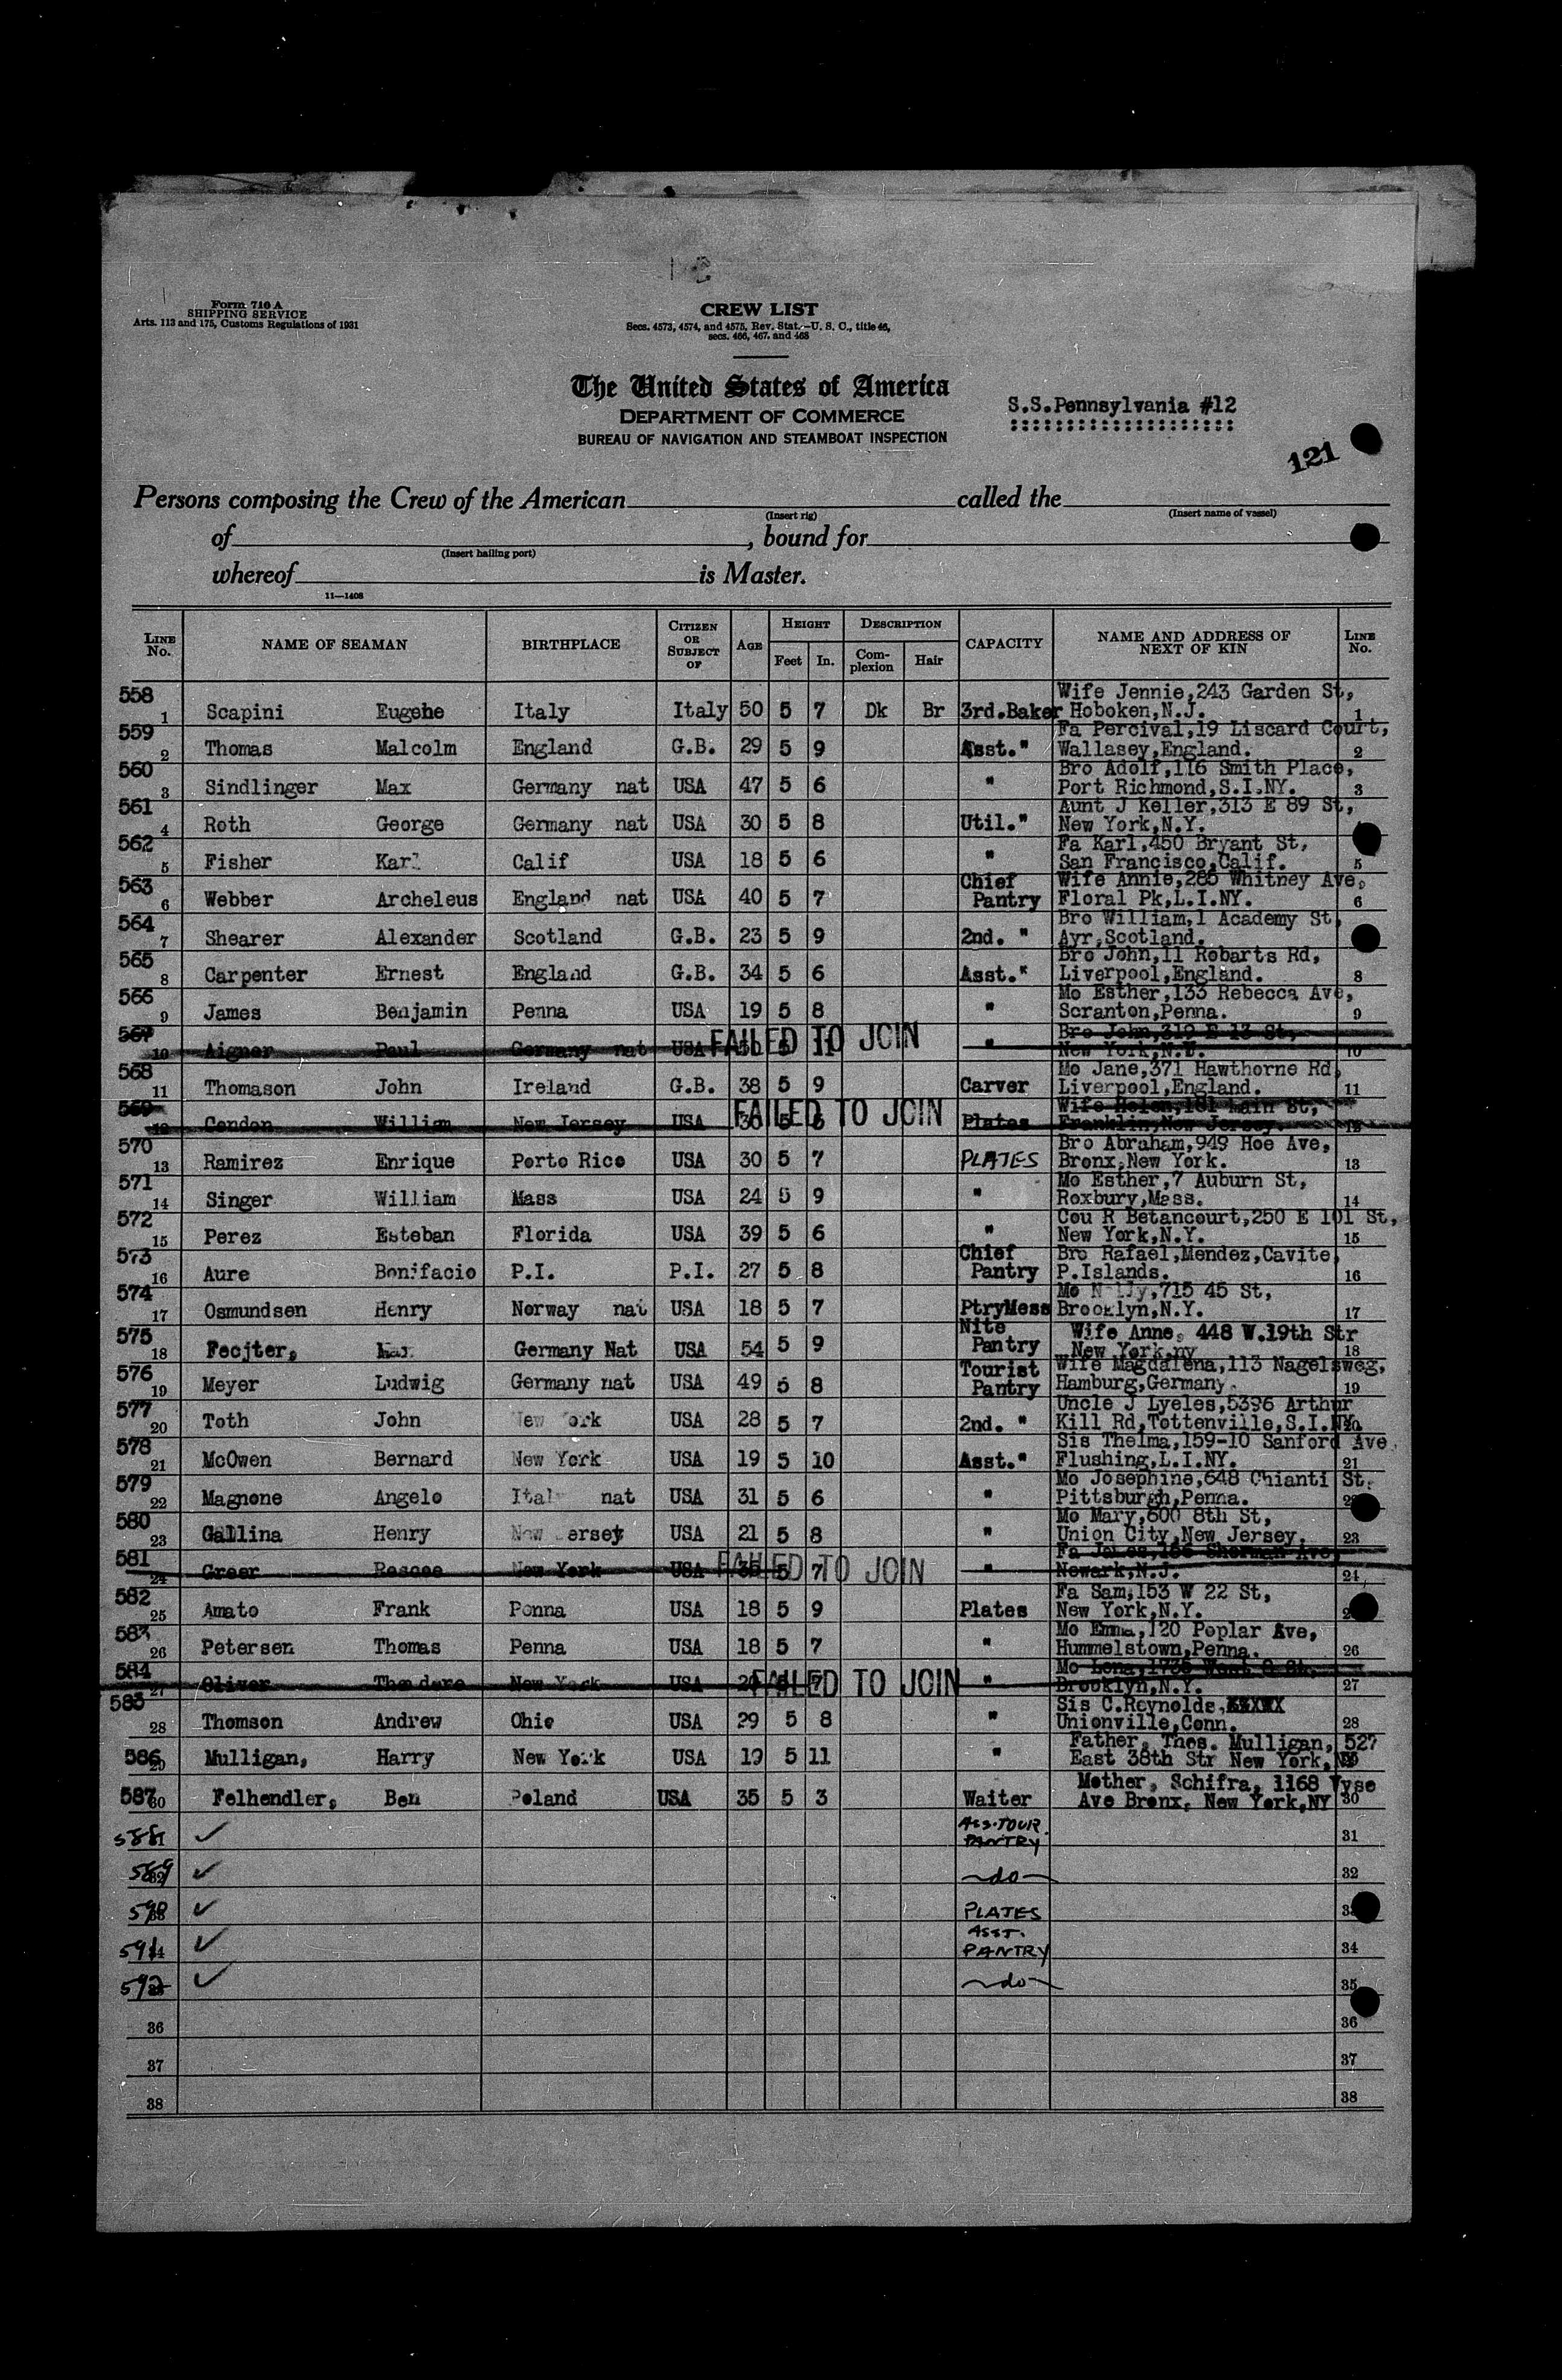 Form 710 A
SHIPPING SERVICE
Arts. 113 and 175, Customs Regulations of 1931
CREW LIST
Secs. 4573, 4574, and 4575, Rev. Stat.—U. S. C., title 46,
secs. 466, 467, and 468
The United States of America
DEPARTMENT OF COMMERCE
BUREAU OF NAVIGATION AND STEAMBOAT INSPECTION
S.S.Pennsylvania #12
121
Persons composing the Crew of the American called the
(Insert rig) (Insert name of vessel)
of , bound for
(Insert hailing port)
whereof is Master.
11—1408
LINE No. NAME OF SEAMAN BIRTHPLACE CITIZEN OR SUBJECT OF AGE HEIGHT Feet In. DESCRIPTION Complexion Hair CAPACITY NAME AND ADDRESS OF NEXT OF KIN LINE No.
558 1 Scapini Eugene Italy Italy 50 5 7 Dk Br 3rd.Baker Wife Jennie,243 Garden St, Hoboken,N.J. 1
559 2 Thomas Malcolm England G.B. 29 5 9 Asst." Fa Percival,19 Liscard Court, Wallasey,England. 2
560 3 Sindlinger Max Germany nat USA 47 5 6 " Bro Adolf,116 Smith Place, Port Richmond,S.I.NY. 3
561 4 Roth George Germany nat USA 30 5 8 Util." Aunt J Keller,313 E 89 St, New York,N.Y.
562 5 Fisher Karl Calif USA 18 5 6 " Fa Karl,450 Bryant St, San Francisco,Calif. 5
563 6 Webber Archeleus England nat USA 40 5 7 Chief Pantry Wife Annie,285 Whitney Ave, Floral Pk,L.I.NY. 6
564 7 Shearer Alexander Scotland G.B. 23 5 9 2nd. " Bro William,1 Academy St, Ayr,Scotland.
565 8 Carpenter Ernest England G.B. 34 5 6 Asst." Bro John,11 Robarts Rd, Liverpool,England. 8
566 9 James Benjamin Penna USA 19 5 8 " Mo Esther,133 Rebecca Ave, Scranton,Penna. 9
567 10 Aigner Paul Germany nat USA FAILED TO JOIN " Bro John,319 E 13 St, New York,N.Y. 10
568 11 Thomason John Ireland G.B. 38 5 9 Carver Mo Jane,371 Hawthorne Rd, Liverpool,England. 11
569 12 Condon William New Jersey USA FAILED TO JOIN Plates Wife Helen,181 Main St, Franklin,New Jersey. 12
570 13 Ramirez Enrique Porto Rico USA 30 5 7 PLATES Bro Abraham,949 Hoe Ave, Bronx,New York. 13
571 14 Singer William Mass USA 24 5 9 " Mo Esther,7 Auburn St, Roxbury,Mass. 14
572 15 Perez Esteban Florida USA 39 5 6 " Cou R Betancourt,250 E 101 St, New York,N.Y. 15
573 16 Aure Bonifacio P.I. P.I. 27 5 8 Chief Pantry Bro Rafael,Mendez,Cavite, P.Islands. 16
574 17 Osmundsen Henry Norway nat USA 18 5 7 PtryMess Mo Nelly,715 45 St, Brooklyn,N.Y. 17
575 18 Fecjter, Germany Nat USA 54 5 9 Nite Pantry Wife Anne, 448 W.19th Str New York,ny 18
576 19 Meyer Ludwig Germany nat USA 49 5 8 Tourist Pantry Wife Magdalena,113 Nagelsweg, Hamburg,Germany. 19
577 20 Toth John New York USA 28 5 7 2nd. " Uncle J Lyeles,5396 Arthur Kill Rd,Tottenville,S.I.NY.
578 21 McOwen Bernard New York USA 19 5 10 Asst." Sis Thelma,159-10 Sanford Ave, Flushing,L.I.NY. 21
579 22 Magnone Angelo Italy nat USA 31 5 6 " Mo Josephine,648 Chianti St, Pittsburgh,Penna.
580 23 Gallina Henry New Jersey USA 21 5 8 " Mo Mary,600 8th St, Union City,New Jersey. 23
581 24 Greer Roscoe New York USA FAILED TO JOIN " Newark,N.J. 24
582 25 Amato Frank Penna USA 18 5 9 Plates Fa Sam,153 W 22 St, New York,N.Y.
583 26 Petersen Thomas Penna USA 18 5 7 " Mo Emma,120 Poplar Ave, Hummelstown,Penna. 26
584 27 Oliver Theodore New York USA FAILED TO JOIN " Brooklyn,N.Y. 27
585 28 Thomson Andrew Ohio USA 29 5 8 " Sis C.Reynolds, Unionville,Conn. 28
586 Mulligan, Harry New York USA 19 5 11 " Father, Thos. Mulligan, 527 East 38th Str New York,NY
587 30 Felhendler, Ben Poland USA 35 5 3 Waiter Mother, Schifra, 1168 Vyse Ave Bronx, New York,NY 30
588 ✓ ASS.TOUR. PANTRY 31
589 ✓ —do— 32
590 ✓ PLATES
591 ✓ ASST. PANTRY 34
592 ✓ —do— 35
36 36
37 37
38 38